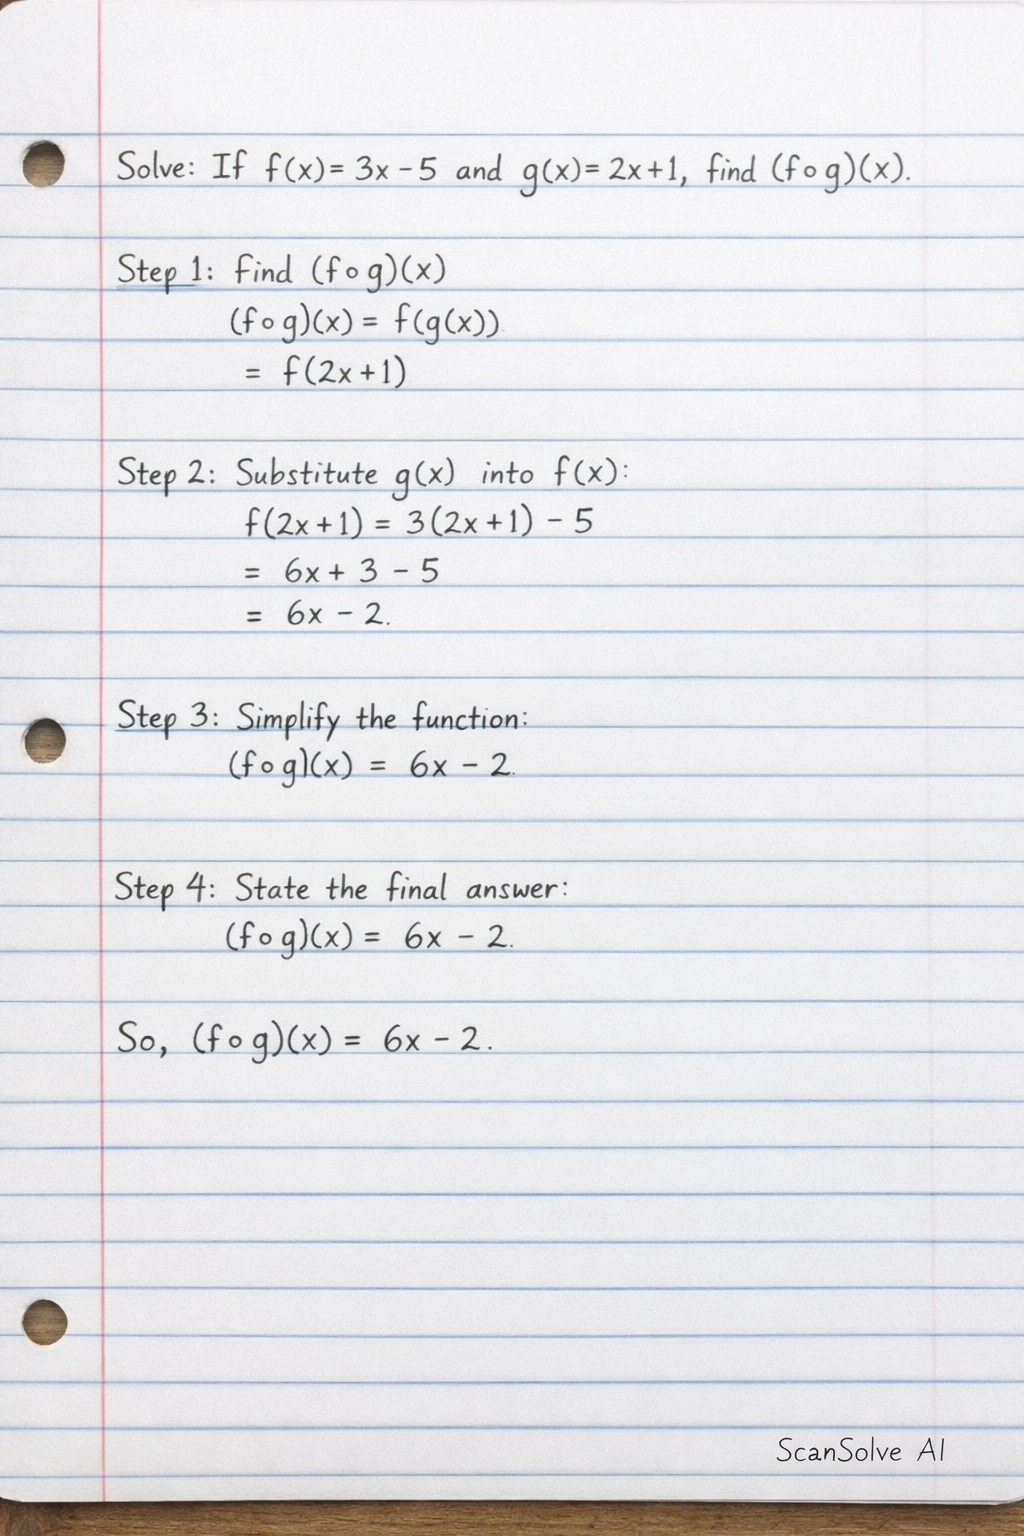 Solve: If f(x)= 3x - 5 and g(x)= 2x+1, find (f∘g)(x).
Step 1: find (f∘g)(x)
(f∘g)(x) = f(g(x))
= f(2x+1)
Step 2: Substitute g(x) into f(x):
f(2x+1) = 3(2x+1) - 5
= 6x + 3 - 5
= 6x - 2.
Step 3: Simplify the function:
(f∘g)(x) = 6x - 2.
Step 4: State the final answer:
(f∘g)(x) = 6x - 2.
So, (f∘g)(x) = 6x - 2.
ScanSolve AI